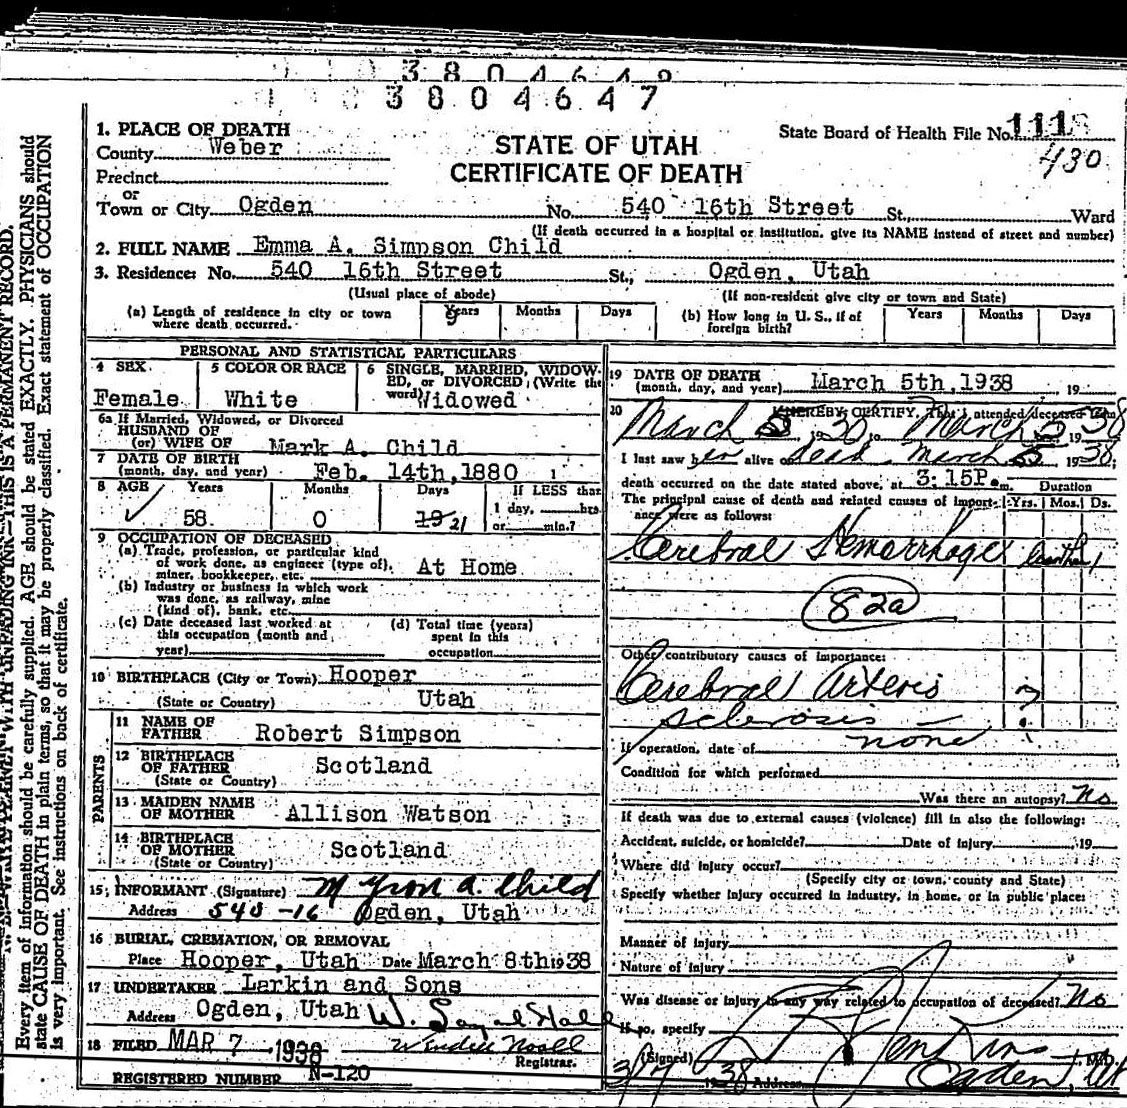 3804647
State Board of Health File No. 111
430
STATE OF UTAH
CERTIFICATE OF DEATH
1. PLACE OF DEATH
County Weber
Precinct
or
Town or City Ogden No. 540 16th Street St., Ward
(If death occurred in a hospital or institution, give its NAME instead of street and number)
2. FULL NAME Emma A. Simpson Child
3. Residence: No. 540 16th Street St., Ogden, Utah
(Usual place of abode) (If non-resident give city or town and State)
(a) Length of residence in city or town where death occurred. Years 9 Months Days
(b) How long in U. S., if of foreign birth? Years Months Days
PERSONAL AND STATISTICAL PARTICULARS
4 SEX Female
5 COLOR OR RACE White
6 SINGLE, MARRIED, WIDOWED, or DIVORCED (Write the word) Widowed
6a If Married, Widowed, or Divorced
HUSBAND OF
(or) WIFE OF Mark A. Child
7 DATE OF BIRTH
(month, day, and year) Feb. 14th, 1880
8 AGE Years 58 Months 0 Days 19 21
If LESS than
1 day, hrs.
or min.?
9 OCCUPATION OF DECEASED
(a) Trade, profession, or particular kind
of work done, as engineer (type of),
miner, bookkeeper, etc. At Home
(b) Industry or business in which work
was done, as railway, mine
(kind of), bank, etc.
(c) Date deceased last worked at
this occupation (month and
year)
(d) Total time (years)
spent in this
occupation
10 BIRTHPLACE (City or Town) Hooper
(State or Country) Utah
PARENTS
11 NAME OF
FATHER Robert Simpson
12 BIRTHPLACE
OF FATHER Scotland
(State or Country)
13 MAIDEN NAME
OF MOTHER Allison Watson
14 BIRTHPLACE
OF MOTHER Scotland
(State or Country)
15 INFORMANT (Signature) Myron A. Child
Address 540-16 Ogden, Utah
16 BURIAL, CREMATION, OR REMOVAL
Place Hooper, Utah Date March 8th 1938
17 UNDERTAKER Larkin and Sons
Address Ogden, Utah
18 FILED MAR 7, 1938
Registrar.
REGISTERED NUMBER N-120
19 DATE OF DEATH
(month, day, and year) March 5th, 1938 19
20 I HEREBY CERTIFY, That I attended deceased from
March 5 1938 to March 5 1938
I last saw her alive on dead March 5 1938;
death occurred on the date stated above, at 3:15P m. Duration
The principal cause of death and related causes of importance were as follows: Yrs. Mos. Ds.
Cerebral Hemorrhage
82a
Other contributory causes of importance:
Cerebral Arterio
sclerosis ?
If operation, date of none
Condition for which performed
Was there an autopsy? No
If death was due to external causes (violence) fill in also the following:
Accident, suicide, or homicide? Date of injury 19
Where did injury occur?
(Specify city or town, county and State)
Specify whether injury occurred in industry, in home, or in public place:
Manner of injury
Nature of injury
Was disease or injury in any way related to occupation of deceased? No
If so, specify
(Signed) Jenkins M.D.
3/7 1938 Address Ogden, Ut
Every item of information should be carefully supplied. AGE should be stated EXACTLY. PHYSICIANS should
state CAUSE OF DEATH in plain terms, so that it may be properly classified. Exact statement of OCCUPATION
is very important. See instructions on back of certificate.